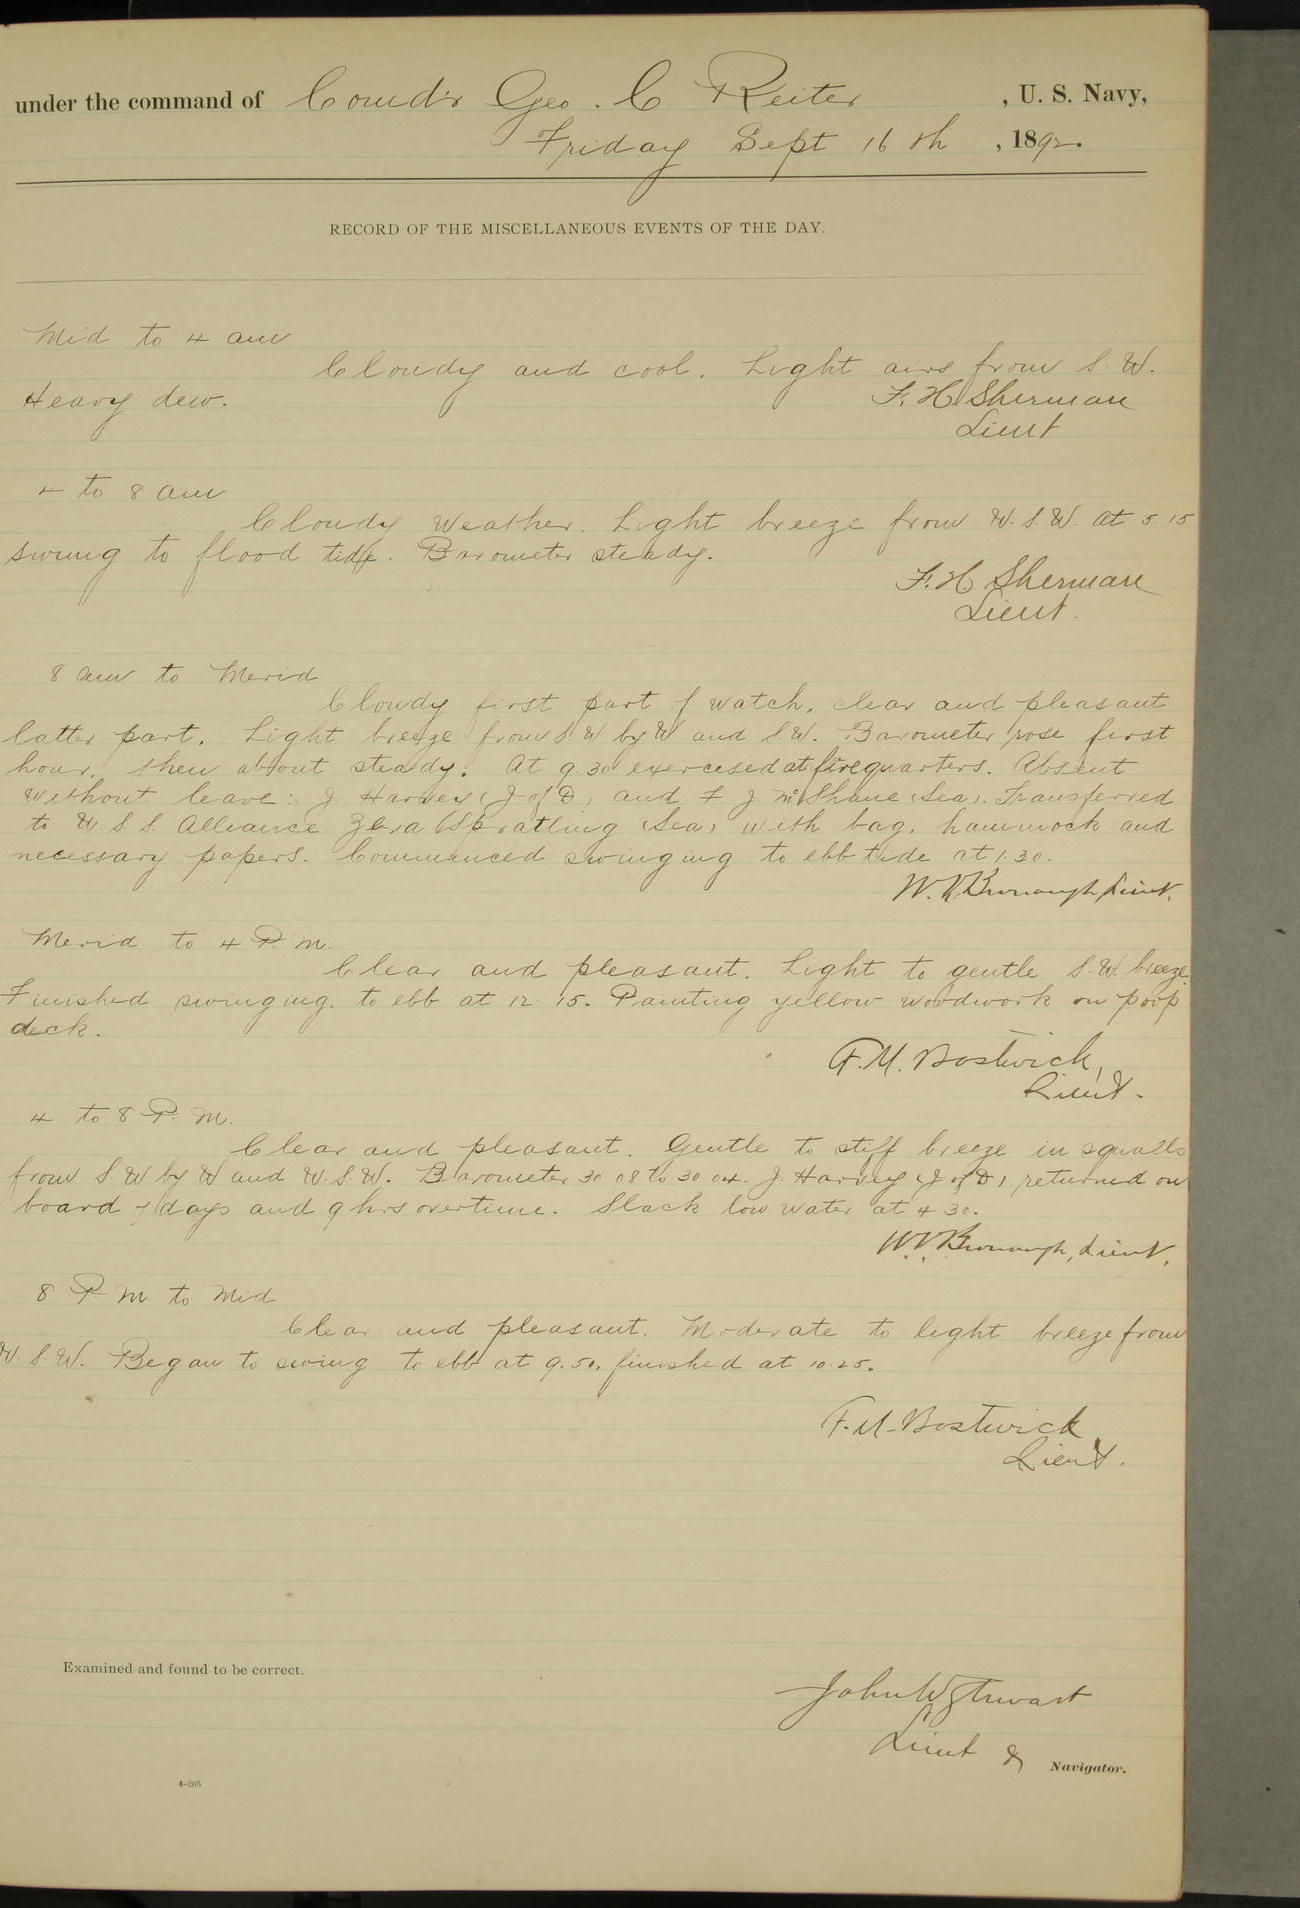 under the command of Comd'r Geo. C. Reiter, U. S. Navy,
Friday Sept 16th, 1892.
RECORD OF THE MISCELLANEOUS EVENTS OF THE DAY.
Mid to 4 am
Cloudy and cool. Light airs from S. W.
Heavy dew.
F. H. Sherman
Lieut
4 to 8 am
Cloudy weather. Light breeze from W. S. W. At 5.15
swung to flood tide. Barometer steady.
F. H Sherman
Lieut.
8 am to Merid
Cloudy first part of watch, clear and pleasant
latter part. Light breeze from S. W by W and S. W. Barometer rose first
hour, then about steady. At 9.30 exercised at fire quarters. Absent
without leave: J Harvey (J of D) and F J McShane (Sea). Transferred
to U. S. S. Alliance Spratling (Sea) with bag, hammock and
necessary papers. Commenced swinging to ebb tide at 1.30.
Lieut.
Merid to 4 P. M.
Clear and pleasant. Light to gentle S. W. breeze.
Finished swinging to ebb at 12.15. Painting yellow woodwork on poop
deck.
F. M. Bostwick,
Lieut.
4 to 8 P. M.
Clear and pleasant. Gentle to stiff breeze in squalls
from S. W by W and W. S. W. Barometer 30.08 to 30.04. J. Harvey (J of D) returned on
board 7 days and 9 hrs overtime. Slack low water at 4 30.
Lieut.
8 P M to Mid
Clear and pleasant. Moderate to light breeze from
W. S. W. Began to swing to ebb at 9.50, finished at 10.25.
F. M. Bostwick
Lieut.
Examined and found to be correct.
John W Stewart
Lieut & Navigator.
4-205